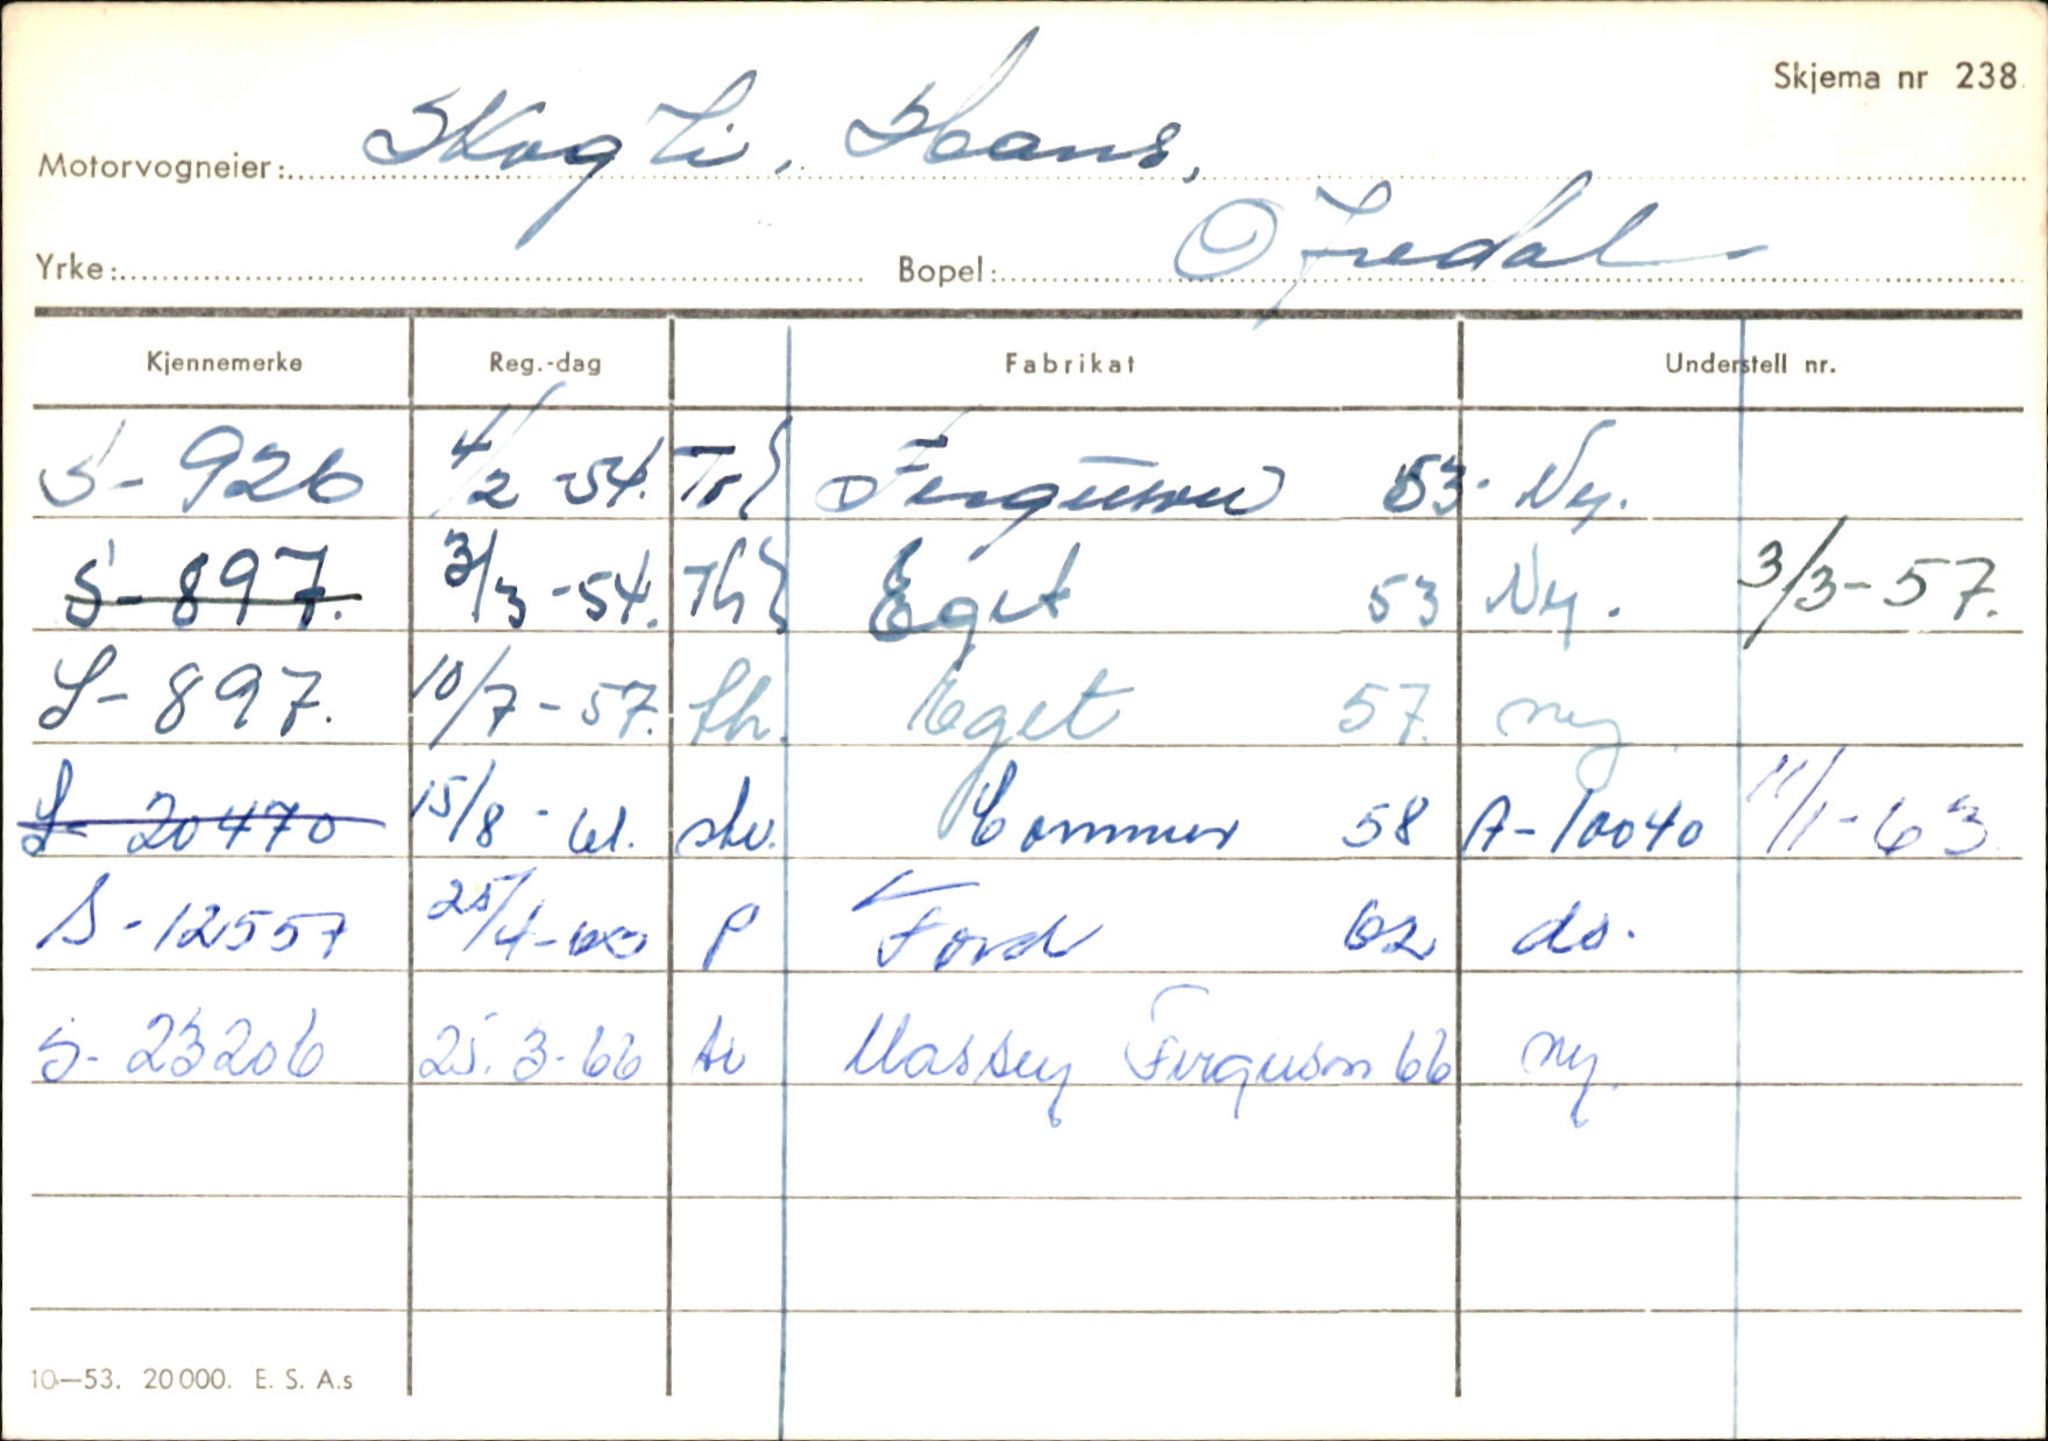 Skjema nr 238
Motorvogneier: Skogli, Hans,
Yrke: Bopel: Ofredal
Kjennemerke Reg.-dag Fabrikat Understell nr.
S-926 4/2-54. Tr Ferguson 53. Ny.
S-897. 3/3-54. Th Eget 53 Ny. 3/3-57.
S-897. 10/7-57. th. Eget 57. ny
S-20470 15/8-61. stv. Commer 58 A-10040 11/1-63
S-12557 25/4- P Ford 62 ds.
S-23206 25.3-66 tr Massey Ferguson 66 ny.
10—53. 20000. E. S. A.s